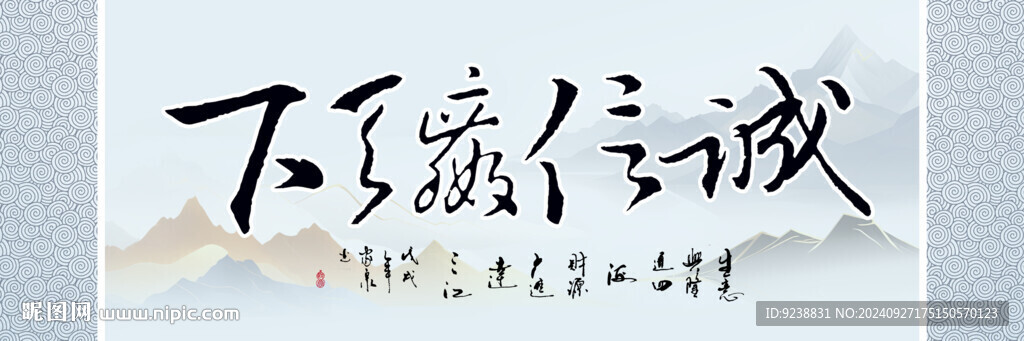 诚信赢天下
生意
兴隆
通四
海
财源
广进
达
三江
戊戌
年
昵图网
www.nipic.com
ID:9238831 NO:20240927175150570123